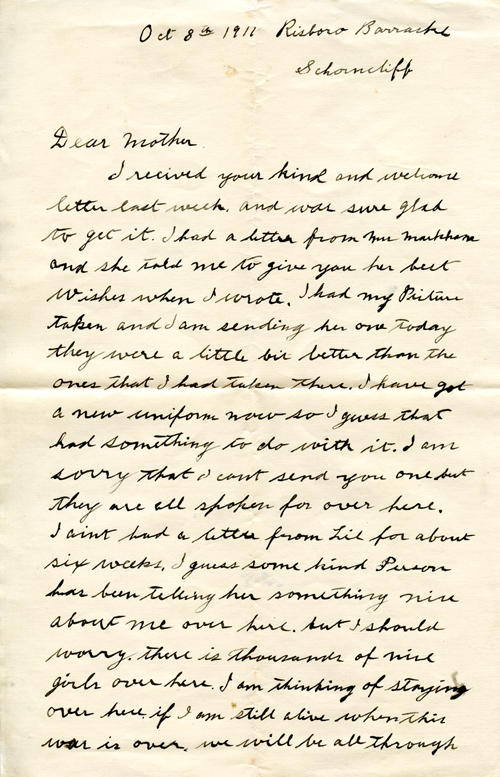 Oct 8th 1911 Risboro Barracks
Schorncliff
Dear Mother.
I recived your kind and welcome
letter last week. and war sure glad
to get it. I had a letter from Mrs Markham
and she told me to give you her best
Wishes when I wrote. I had my Picture
taken and I am sending her one today
they were a little bit better than the
ones that I had taken there. I have got
a new uniform now so I guess that
had something to do with it. I am
sorry that I cant send you one but
they are all spoken for over here.
I aint had a letter from Lil for about
six weeks. I guess some kind Person
has been telling her something nice
about me over here. but I should
worry. there is thousands of nice
girls over here. I am thinking of staying
over here if I am still alive when this
war is over. we will be all through